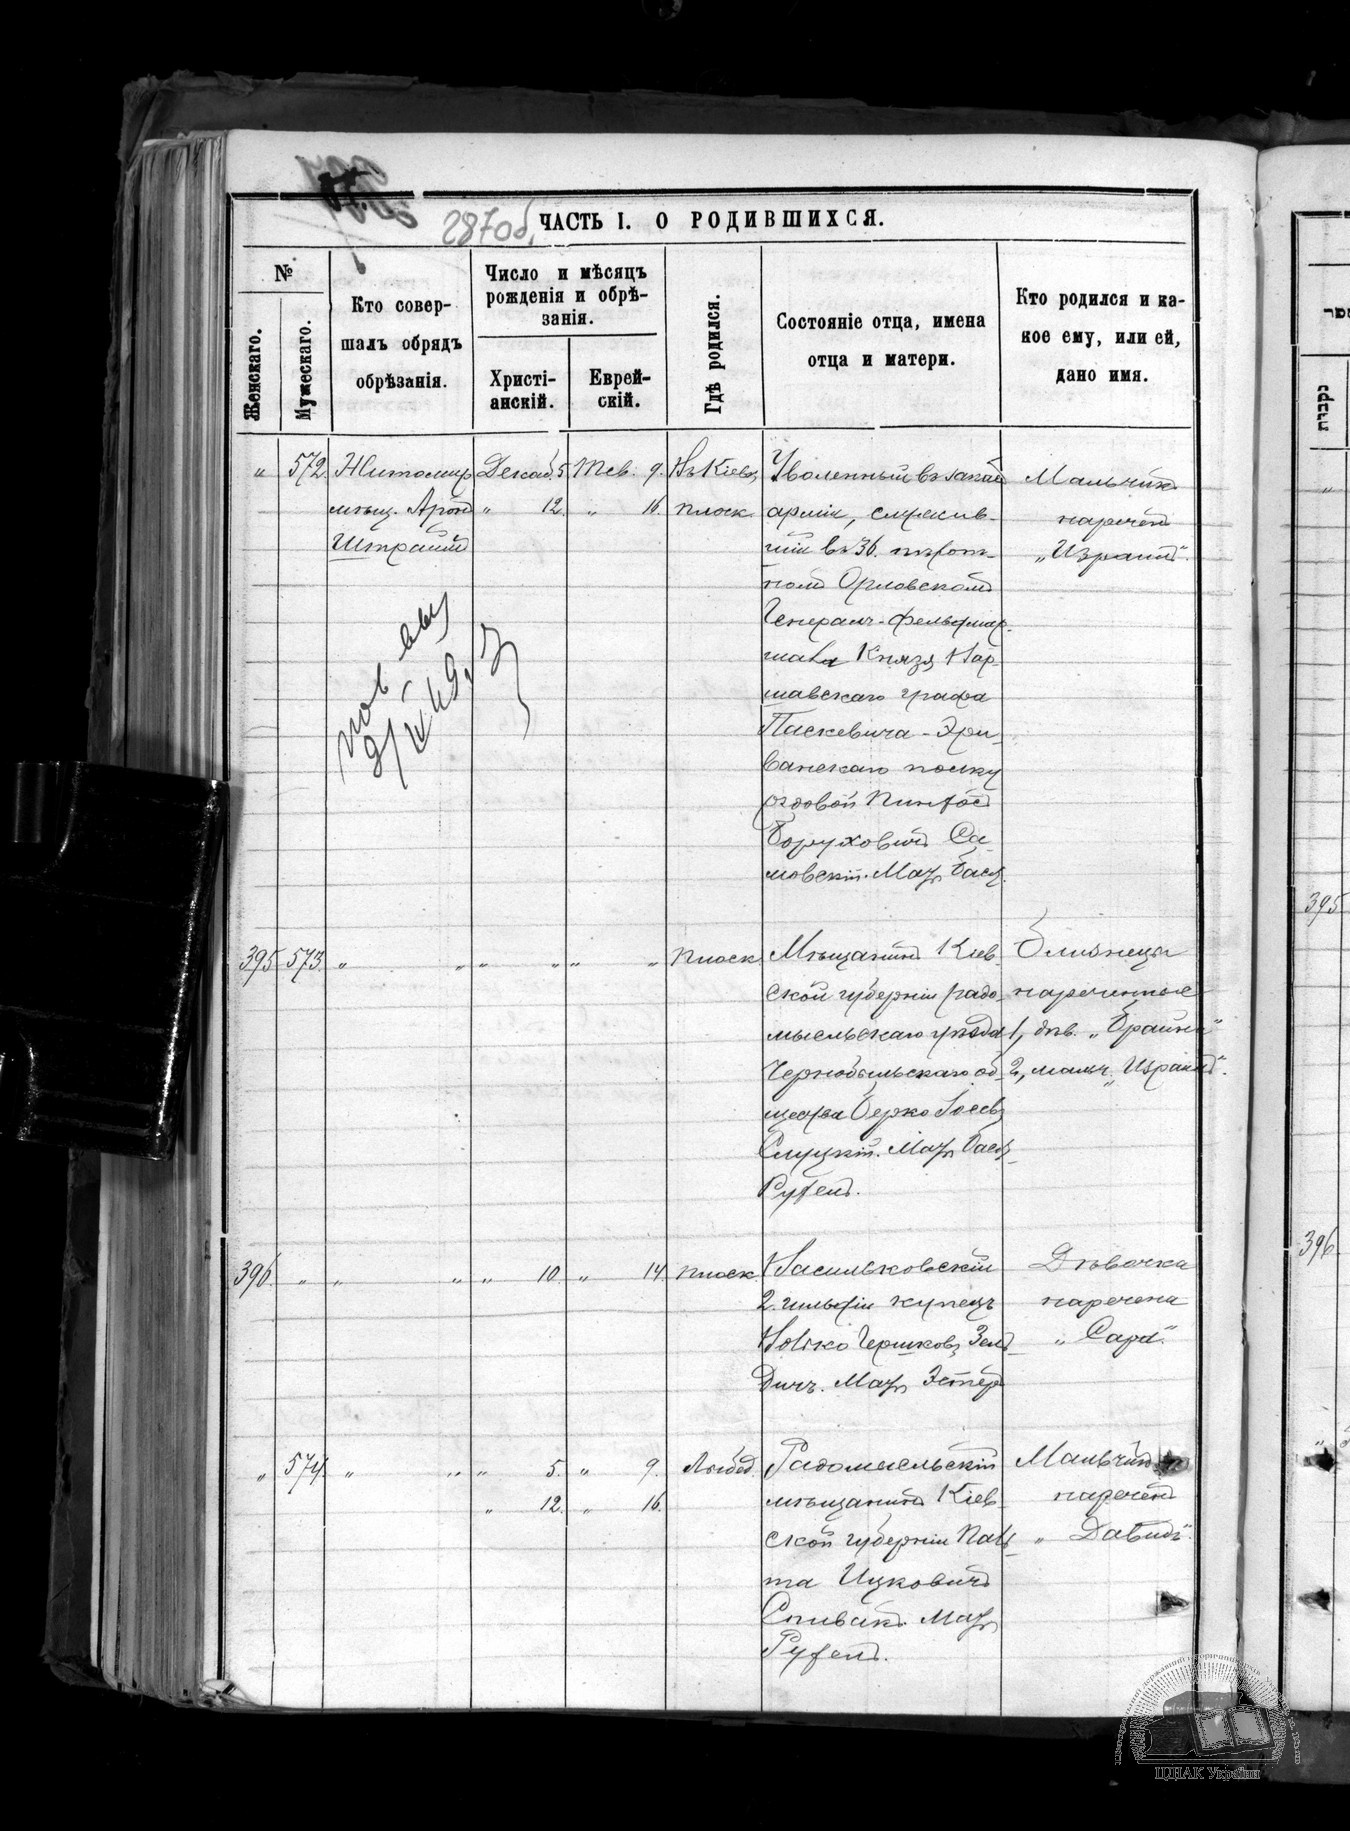 287об.
ЧАСТЬ I. О РОДИВШИХСЯ.
№
Женскаго.
Мужескаго.
Кто совер-
шалъ обрядъ
обрѣзанія.
Число и мѣсяцъ
рожденія и обрѣ-
занія.
Христі-
анскій.
Еврей-
скій.
Гдѣ родился.
Состояніе отца, имена
отца и матери.
Кто родился и ка-
кое ему, или ей,
дано имя.
" 572. Житомир. Декаб. 5. Тев. 9. Въ Кіевѣ,
мѣщ. Аронъ " 12. " 16. плоск.
Штраймъ
Уволенный въ запасъ
арміи, служив-
шій въ 36. пѣхот-
номъ Орловскомъ
Генералъ-фельдмар-
шала Князя Вар-
шавскаго графа
Паскевича-Эри-
ванскаго полку
рядовой Пинхосъ
Боруховичъ
Мать Бася.
Мальчикъ
нареченъ
„Израиль".
395 573. " " " " " " Плоск.
Мѣщанинъ Кіев-
ской губерніи радо-
мысльскаго уѣзда
Чернобыльскаго об-
щества Берко
Слуцкій. Мать Бася-
Рухель.
Близнецы
нареченные
1, дѣв. „Брайна"
2, мальч. „Израиль".
396. " " " " 10. " 14. плоск.
Васильковскій
2. гильдіи купецъ
Гершковъ Зель-
дичъ. Мать Эстеръ
Дѣвочка
наречена
„Сара".
" 574. " " " 5. " 9. Лыбед.
" 12. " 16.
Радомысльскій
мѣщанинъ Кіев-
ской губерніи
Ицковичъ
Спивакъ. Мать
Рухель.
Мальчикъ
нареченъ
„Давидъ".
395
396
ЦДІАК України